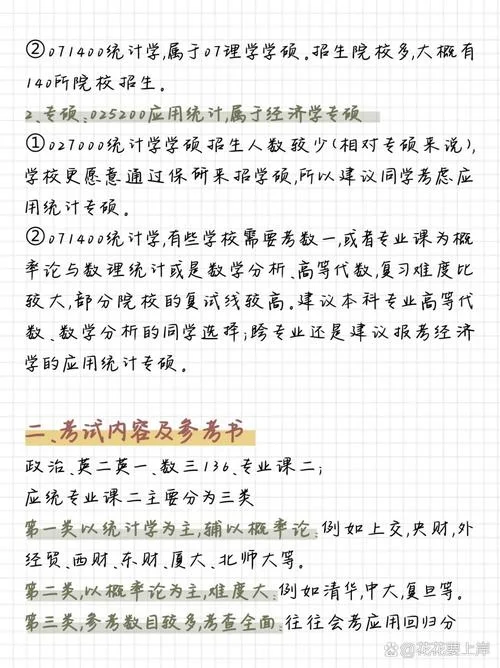 ②071400统计学,属于07理学学硕。招生院校多,大概有
140所院校招生。
2、专硕:025200应用统计,属于经济学专硕
①027000统计学学硕招生人数较少(相对专硕来说),
学校更愿意通过保研来招学硕,所以建议同学考虑应
用统计专硕。
②071400统计学,有些学校需要考数一,或者专业课为概
率论与数理统计或是数学分析、高等代数,复习难度比
较大,部分院校的复试线较高。建议本科专业高等代
数、数学分析的同学选择;跨专业还是建议报考经济
学的应用统计专硕。
二、考试内容及参考书
政治、英二英一、数三136、专业课二;
应统专业课二主要分为三类
第一类以统计学为主,辅以概率论:例如上交,央财,外
经贸、西财、东财、厦大、北师大等。
第二类,以概率论为主,难度大:例如清华,中大,复旦等。
第三类,参考数目较多,考查全面:往往会考应用回归分
@花花要上岸